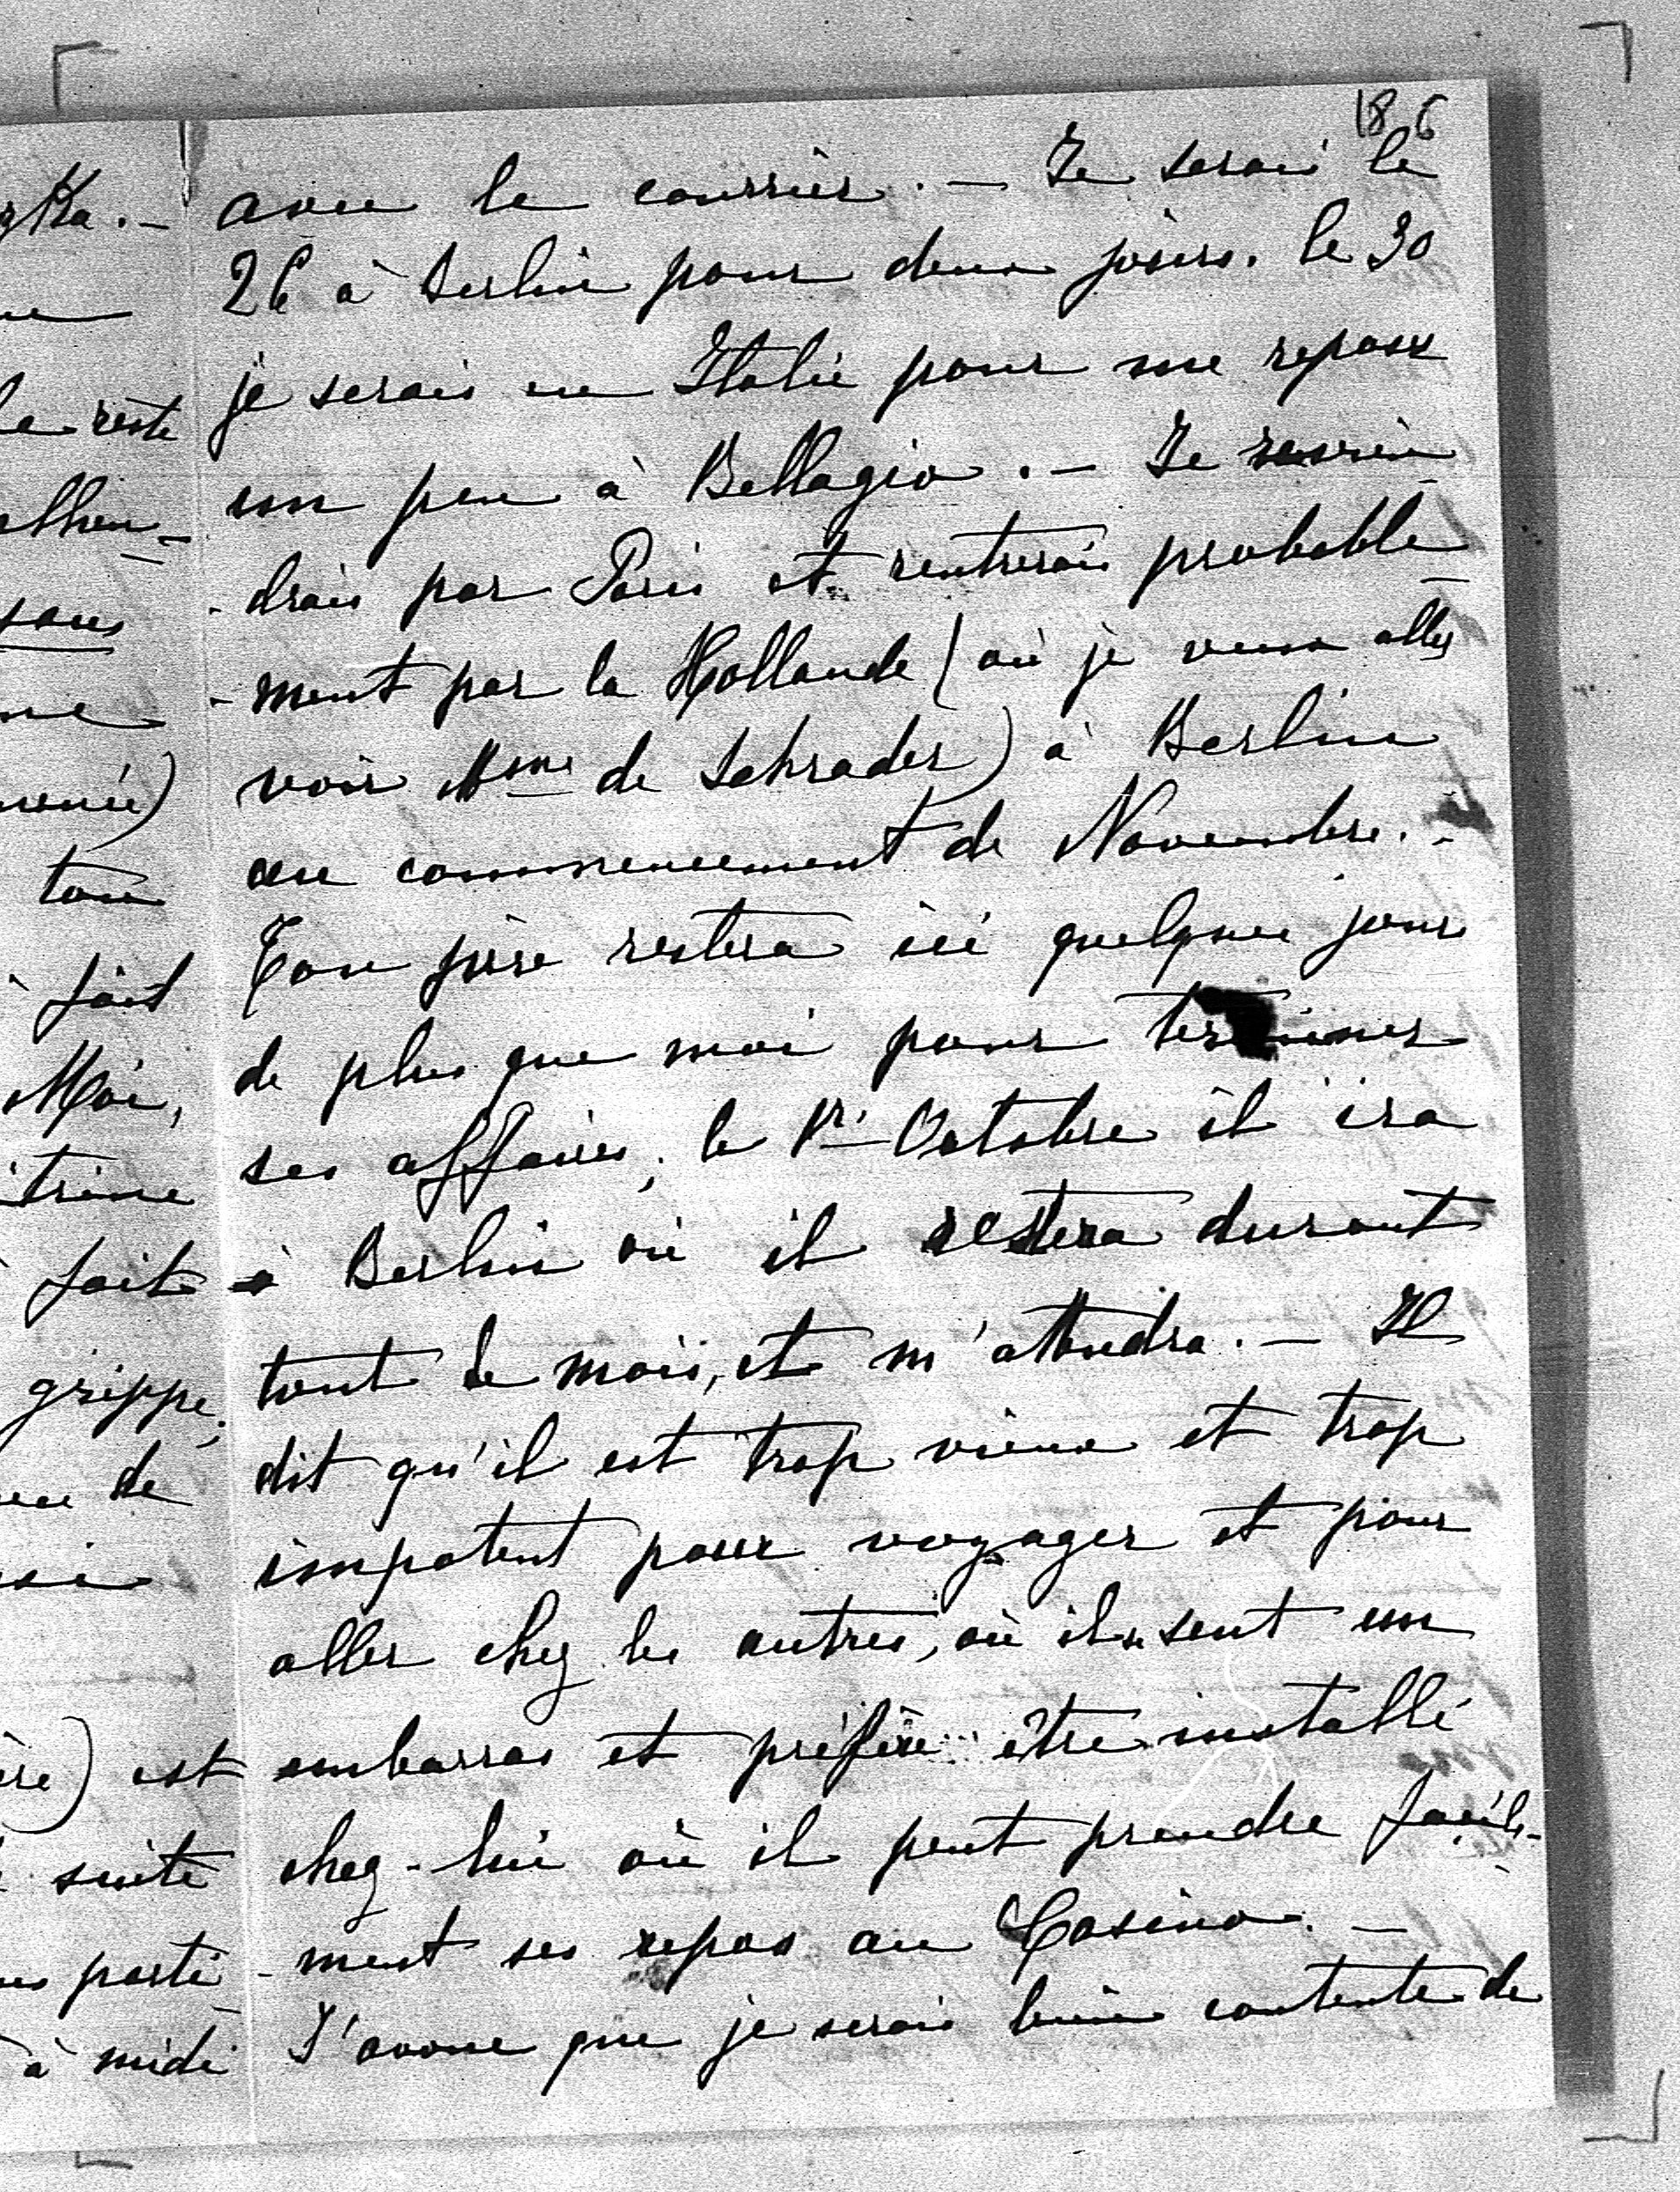 186
avec le courrier. — Je serai le
26 à Berlin pour deux jours. le 30
je serais en Italie pour me reposer
un peu à Bellagio. — Je revien-
-drais par Paris et rentrerais probable-
-ment par la Hollande (où je veux aller
voir Mme de Schrader) à Berlin
au commencement de Novembre. -
Ton père restera ici quelques jours
de plus que moi pour terminer
ses affaires, le 1r Octobre il ira
à Berlin où il restera durant
tout le mois, et m'attendra. — Il
dit qu'il est trop vieux et trop
impotent pour voyager et pour
aller chez les autres, où il se sent un
embarras et préfère être installé
chez-lui où il peut prendre facile-
-ment ses repas au Casino. —
J'avoue que je serais bien contente de
reste
sous
ton
fait
Moi,
fait
grippe,
de
est
suite
parti
à midi